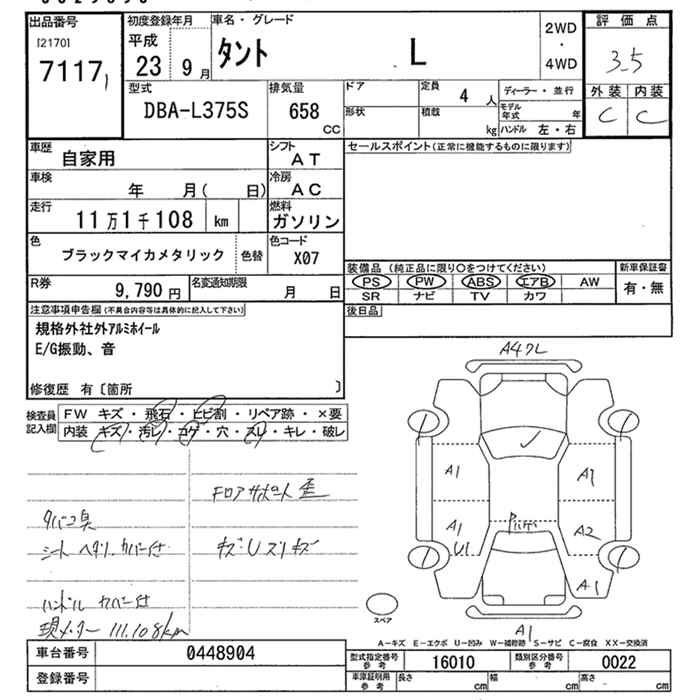 出品番号
[2170]
7117
初度登録年月
平成
23 9月
車名・グレード
タント L
2WD
・
4WD
評価点
3.5
外装 内装
C C
型式
DBA-L375S
排気量
658
CC
ドア
形状
定員
4人
積載
kg
ディーラー・並行
モデル年式 年
ハンドル 左・右
車歴
自家用
シフト
AT
車検
年 月( 日)
冷房
AC
走行
11万1千108 km
燃料
ガソリン
色
ブラックマイカメタリック
色替
色コード
X07
R券
9,790円
名変通知期限
月 日
セールスポイント(正常に機能するものに限ります)
装備品 (純正品に限り○をつけてください)
PS PW ABS エアB AW
SR ナビ TV カワ
新車保証書
有・無
後日品
注意事項申告欄(不具合内容等は具体的に記入して下さい)
規格外社外アルミホイール
E/G振動、音
修復歴 有〔箇所 〕
検査員記入欄
FW キズ・飛石・ヒビ割・リペア跡・×要
内装 キズ・汚レ・コゲ・穴・スレ・キレ・破レ
フロアサポート 歪
タバコ臭
シート ヘタリ カバー付
キズ:Uズリキズ
ハンドル カバー付
現メーター 111,108km
A4クレ
A1
A1
A1
U1
A2
A1
A1
スペア
A-キズ E-エクボ U-凹み W-補修跡 S-サビ C-腐食 XX-交換済
車台番号
0448904
登録番号
型式指定番号
参考
16010
類別区分番号
参考
0022
車庫証明用
参考
長さ cm
幅 cm
高さ cm